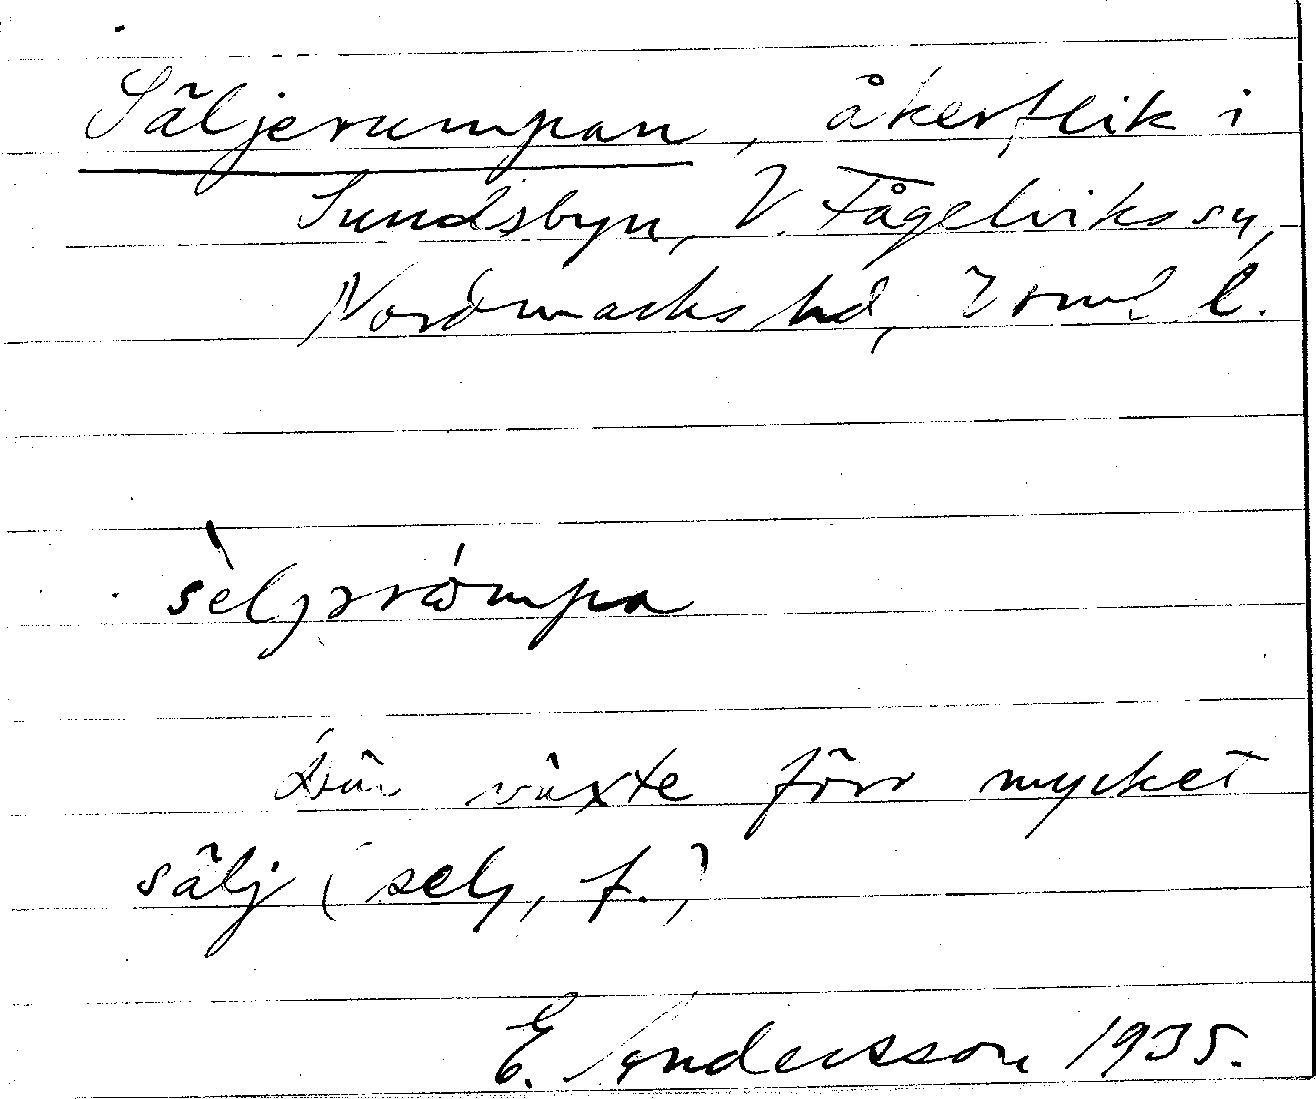 Säljerumpan, åkerflik i
Sundsbyn, V. Fågelviks sn,
Nordmarks hd, Vrml. l.
sèljərómpa
Där växte förr mycket
sälj (selj, f.)
E. Andersson 1935.